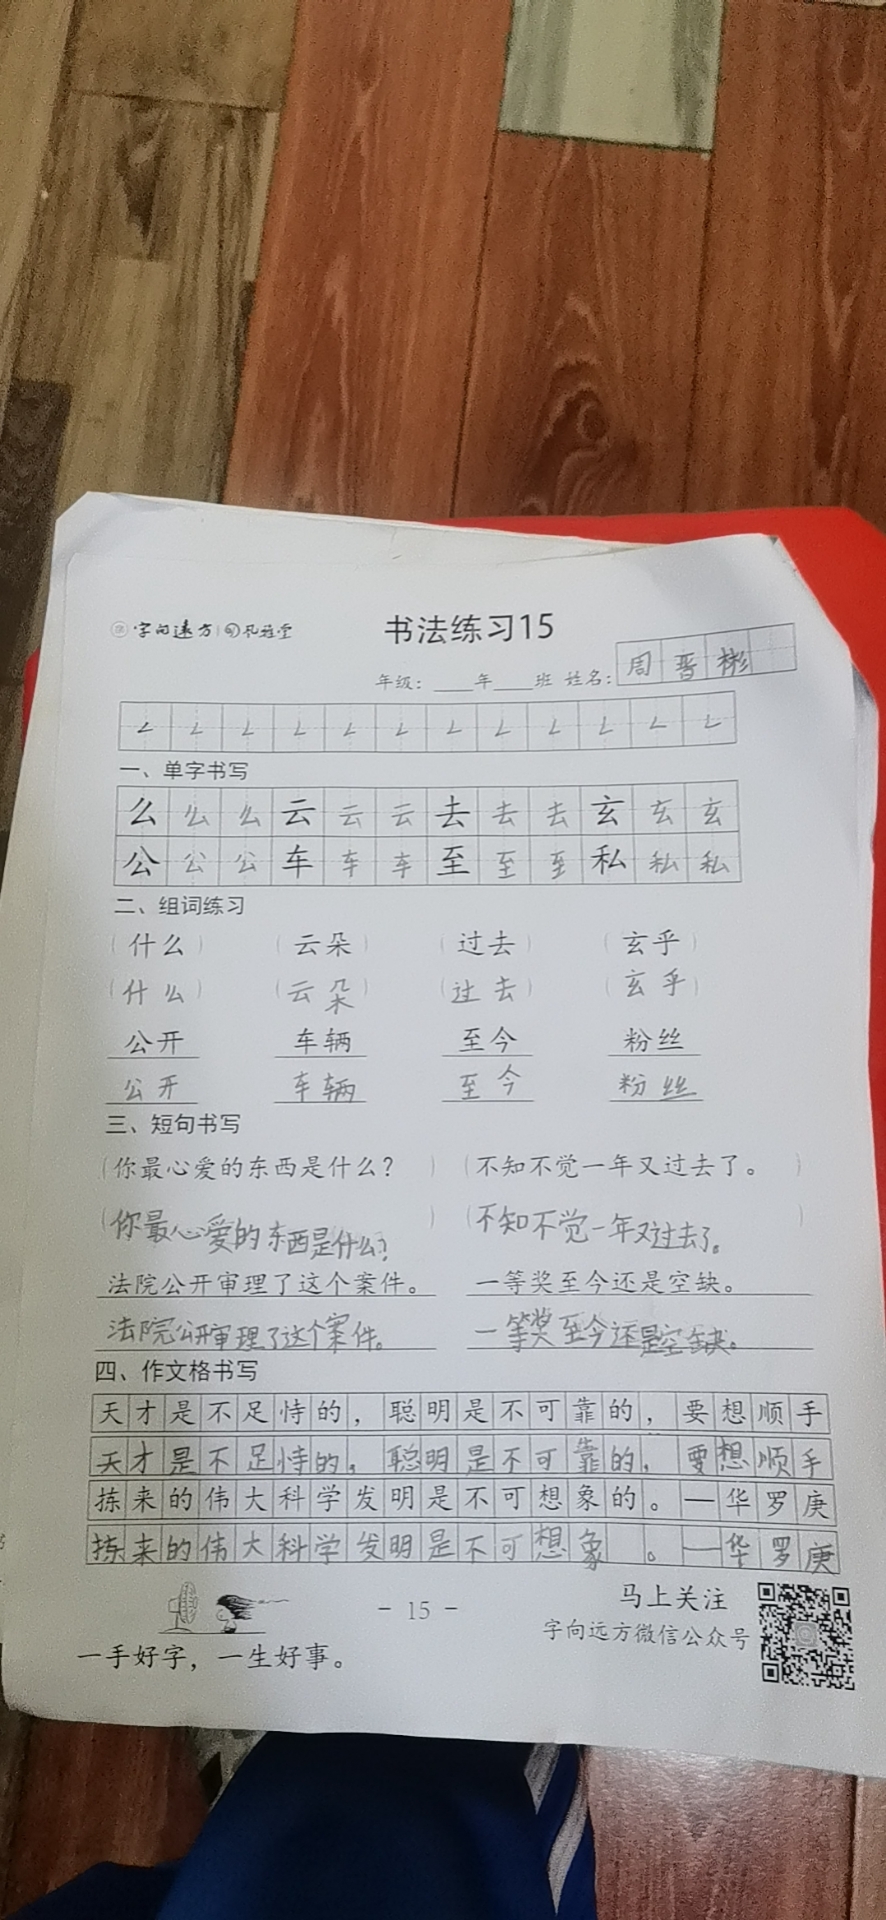 字向远方 孔雅堂
书法练习15
年级：____年____班 姓名：周晋彬
一、单字书写
么 么 么 云 云 云 去 去 去 玄 玄 玄
公 公 公 车 车 车 至 至 至 私 私 私
二、组词练习
（什么） （云朵） （过去） （玄乎）
（什么） （云朵） （过去） （玄乎）
公开 车辆 至今 粉丝
公开 车辆 至今 粉丝
三、短句书写
（你最心爱的东西是什么？） （不知不觉一年又过去了。）
（你最心爱的东西是什么？） （不知不觉一年又过去了。）
法院公开审理了这个案件。 一等奖至今还是空缺。
法院公开审理了这个案件。 一等奖至今还是空缺。
四、作文格书写
天才是不足恃的，聪明是不可靠的，要想顺手
天才是不足恃的，聪明是不可靠的，要想顺手
拣来的伟大科学发明是不可想象的。—华罗庚
拣来的伟大科学发明是不可想象 。—华罗庚
- 15 -
马上关注
字向远方微信公众号
一手好字，一生好事。